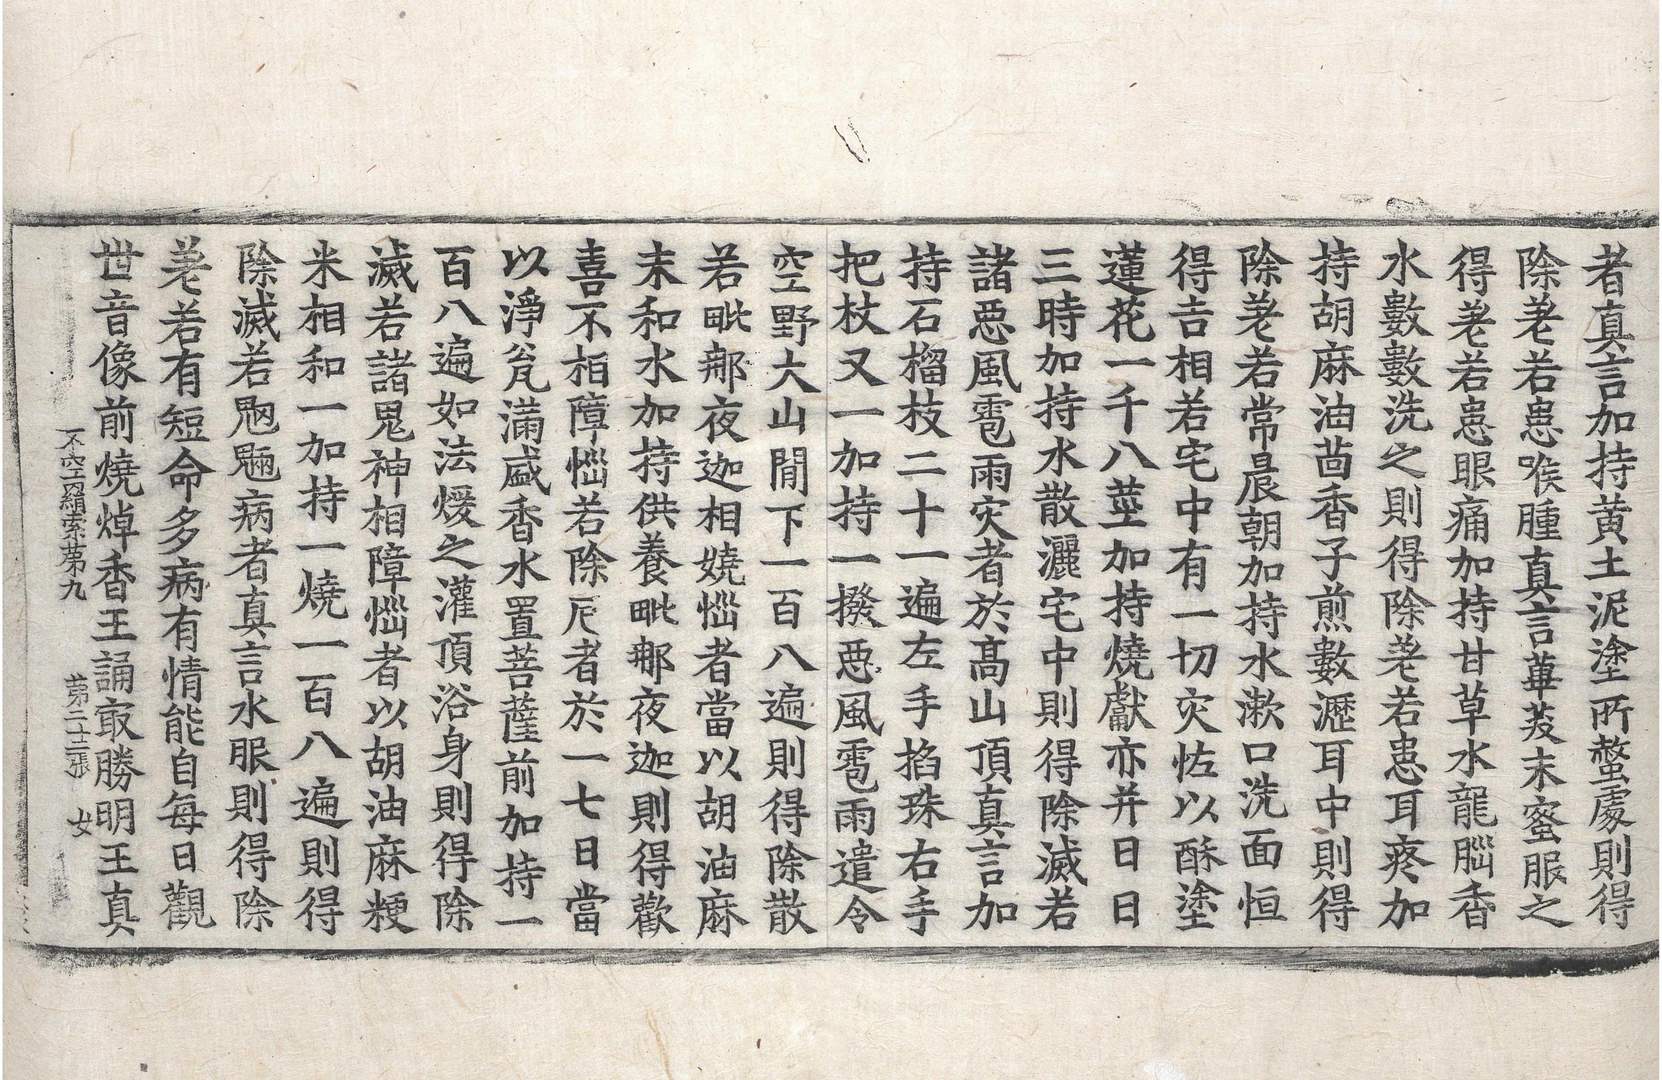 者真言加持黄土泥塗所螫處則得
除差若患喉腫真言蓽茇末蜜服之
得差若患眼痛加持甘草水龍腦香
水數數洗之則得除差若患耳疼加
持胡麻油茴香子煎數瀝耳中則得
除差若常晨朝加持水漱口洗面恒
得吉相若宅中有一切灾怪以酥塗
蓮花一千八莖加持燒獻亦并日日
三時加持水散灑宅中則得除滅若
諸惡風雹雨灾者於高山頂真言加
持石榴枝二十一遍左手掐珠右手
把杖又一加持一撥惡風雹雨遣令
空野大山閒下一百八遍則得除散
若毗那夜迦相嬈惱者當以胡油麻
末和水加持供養毗那夜迦則得歡
喜不相障惱若除戹者於一七日當
以淨瓫滿盛香水置菩薩前加持一
百八遍如法煖之灌頂浴身則得除
滅若諸鬼神相障惱者以胡油麻粳
米相和一加持一燒一百八遍則得
除滅若魍魎病者真言水服則得除
差若有短命多病有情能自每日觀
世音像前燒焯香王誦㝡勝明王真
不空羂索苐九 苐二十二張 女